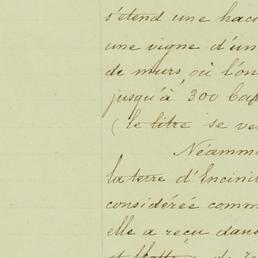 s'étend une hac
une vigne d'un
de murs, où l'on
jusqu'à 300 ba
(le litre se ve
Néamm
la terre d'Encini
considérée comm
elle a reçu dans
et